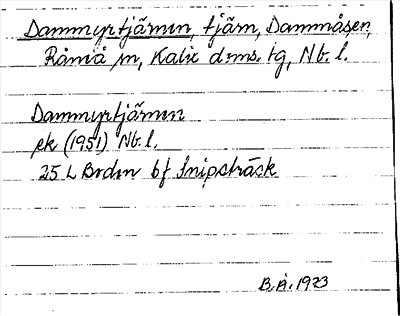 Dammyrtjärnen, tjärn, Dammåsen,
Råneå sn, Kalix dnms. tg, Nb. l.
Dammyrtjärnen
ek (1951) Nb. l.
25 L Boden bf Snipsträsk
B.Å. 1973